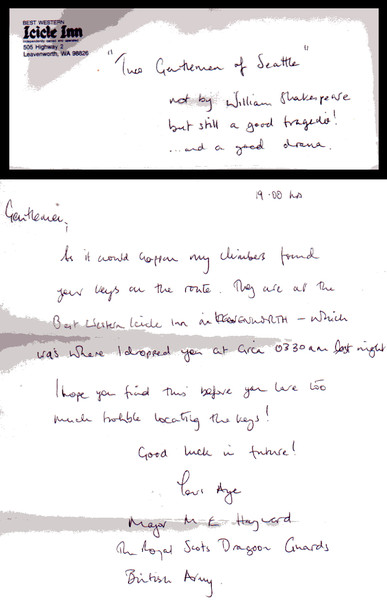 BEST WESTERN
Icicle Inn
505 Highway 2
Leavenworth, WA 98826
"Two Gentlemen of Seattle"
not by William Shakespeare
but still a good tragedie!
...and a good drama.
19.00 hrs
Gentlemen,
As it would happen my climbers found
your keys on the route. They are at the
Best Western Icicle Inn in LEAVENWORTH - which
was where I dropped you at circa 0330 am last night
I hope you find this before you have too
much trouble locating the keys!
Good luck in future!
Yours Aye
Major M E Hayward
The Royal Scots Dragoon Guards
British Army.